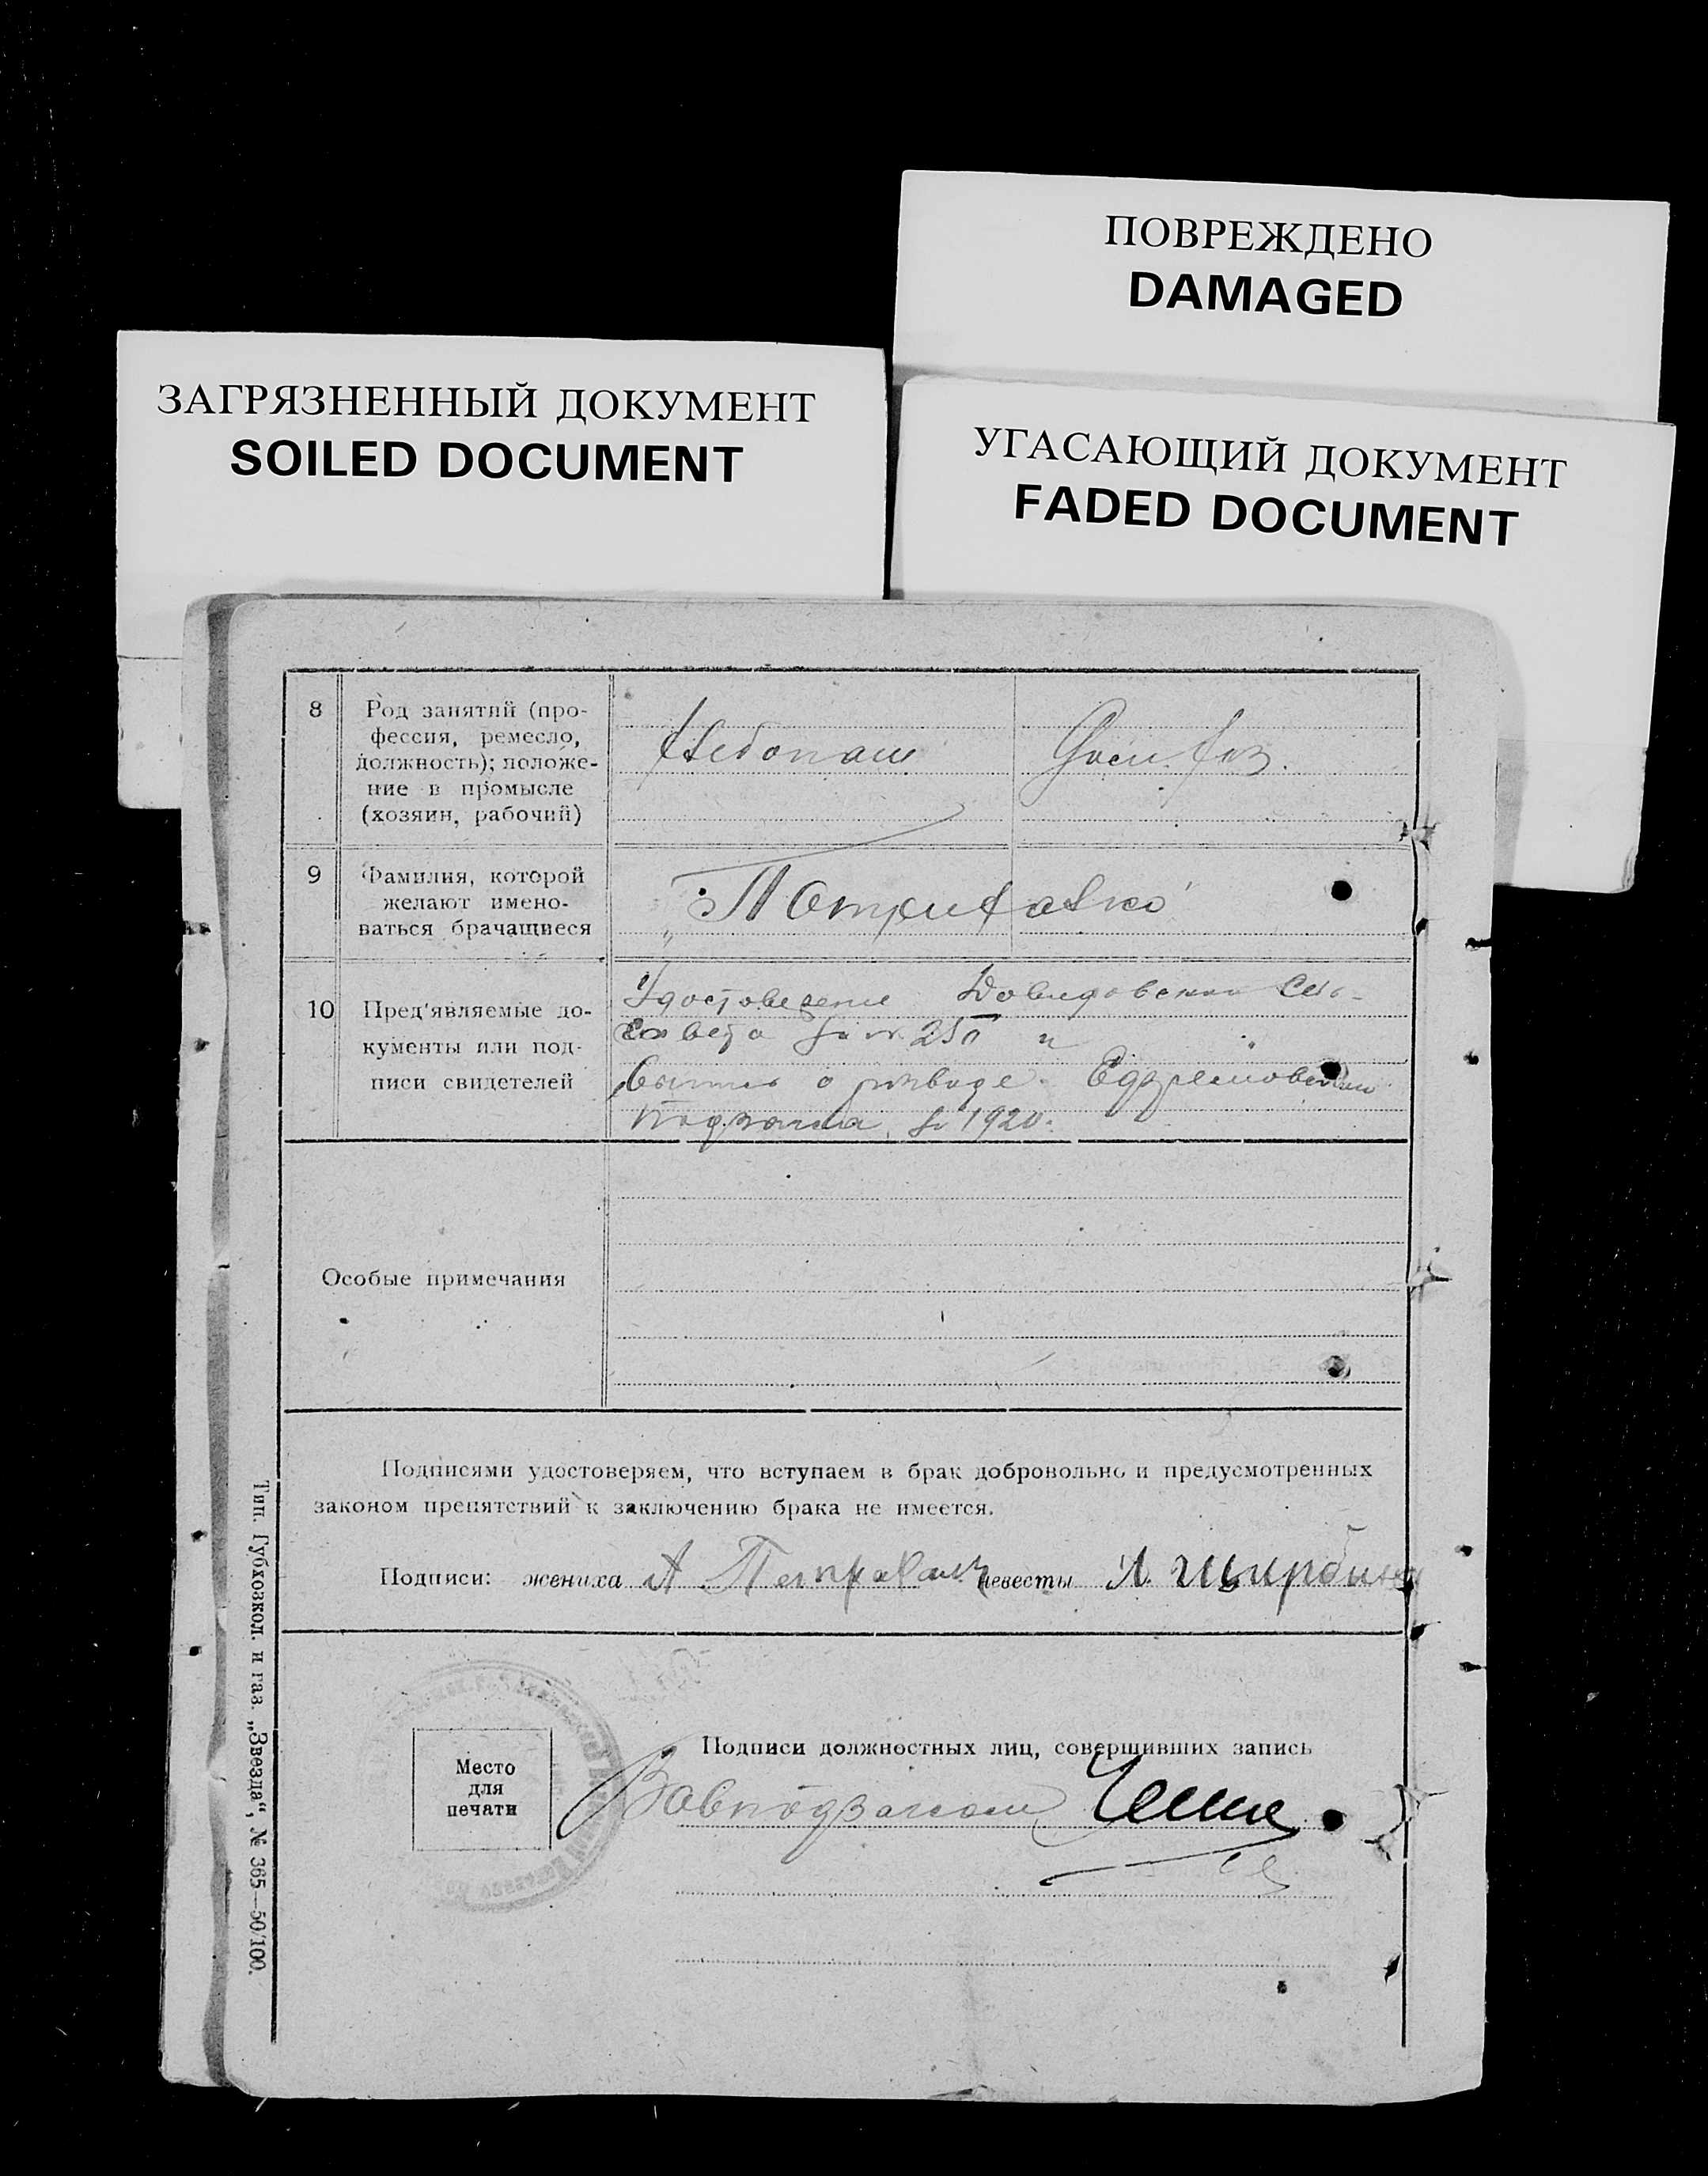 ПОВРЕЖДЕНО
DAMAGED
ЗАГРЯЗНЕННЫЙ ДОКУМЕНТ
SOILED DOCUMENT
УГАСАЮЩИЙ ДОКУМЕНТ
FADED DOCUMENT
8
Род занятий (про-
фессия, ремесло,
должность); положе-
ние в промысле
(хозяин, рабочий)
Хлебопаш
Дом. хоз.
9
Фамилия, которой
желают имено-
ваться брачащиеся
10
Пред'являемые до-
кументы или под-
писи свидетелей
Совета за № 250 и
о разводе
Подзагса 1920.
Особые примечания
Подписями удостоверяем, что вступаем в брак добровольно и предусмотренных
законом препятствий к заключению брака не имеется.
Подписи: жениха А невесты
Место
для
печати
Подписи должностных лиц, совершивших запись
Завподзагсом
Тип. Губхозкол. и газ. „Звезда", № 365—50/100.